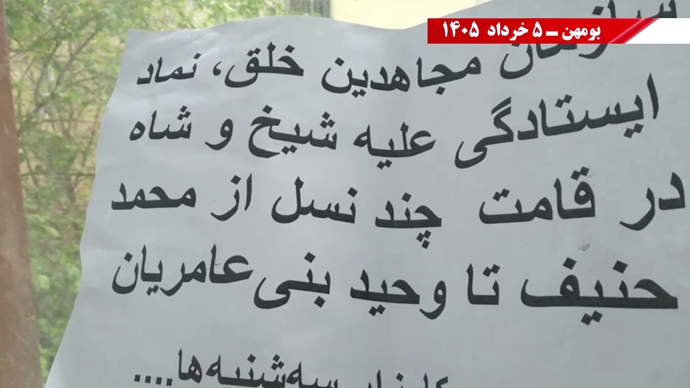 بومهن ــ ۵ خرداد ۱۴۰۵
سازمان مجاهدین خلق، نماد
ایستادگی علیه شیخ و شاه
در قامت چند نسل از محمد
حنیف تا وحید بنی‌عامریان
سه‌شنبه‌ها....